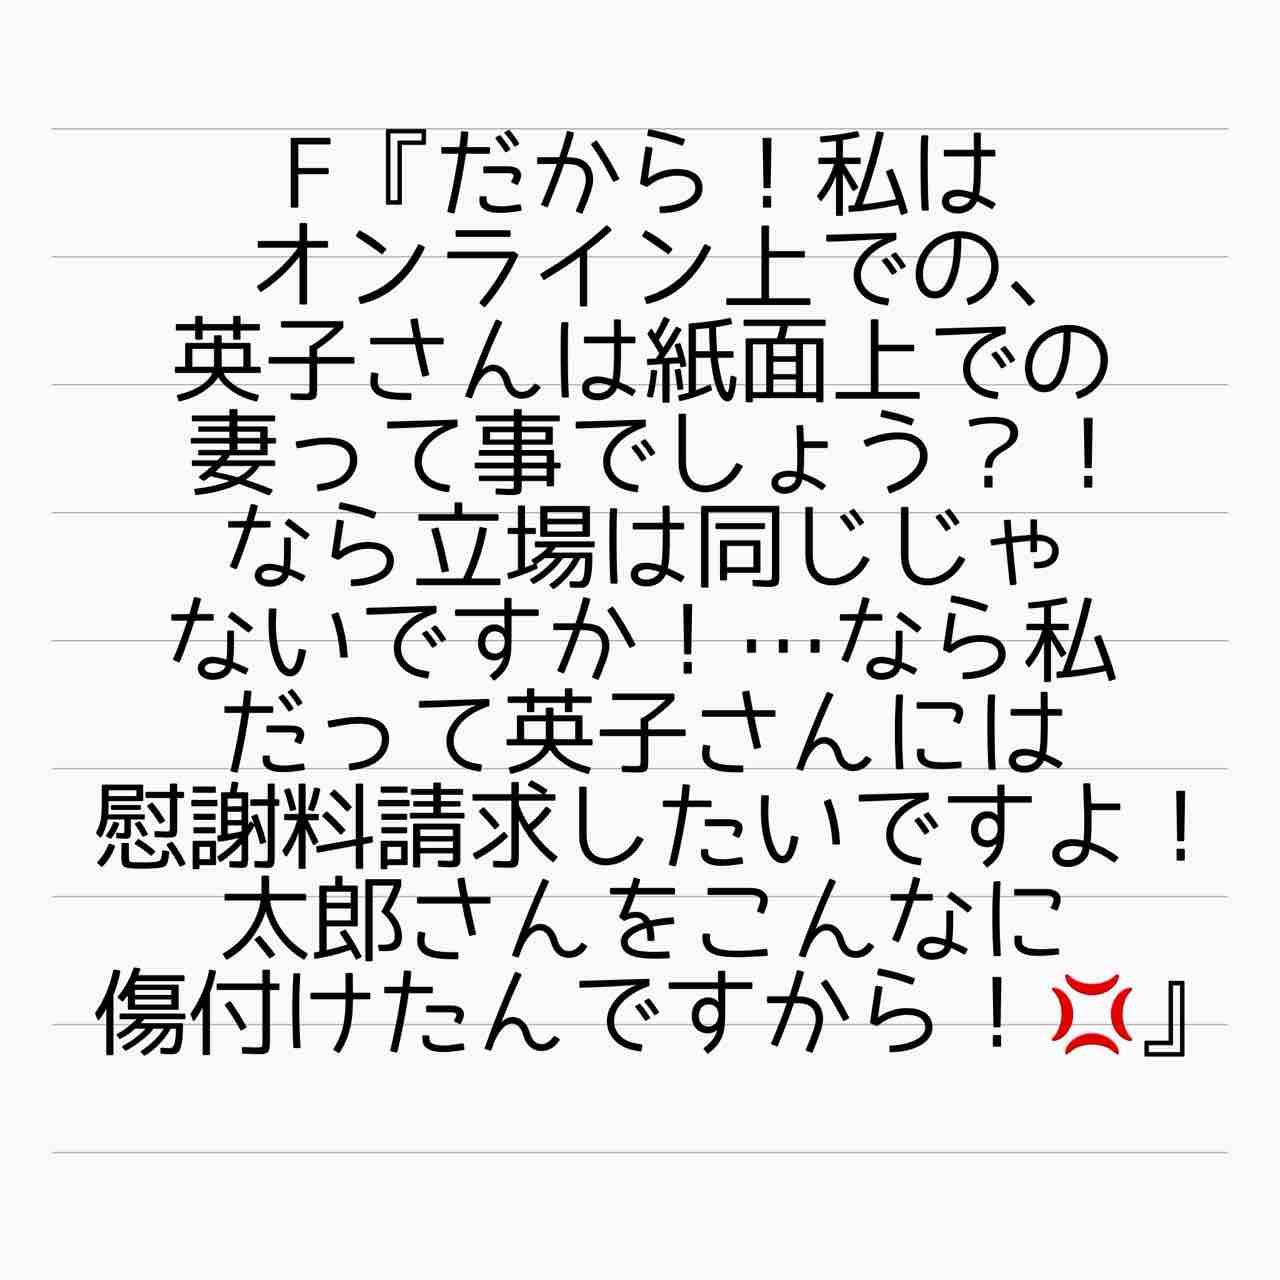 F『だから！私は
オンライン上での、
英子さんは紙面上での
妻って事でしょう？！
なら立場は同じじゃ
ないですか！…なら私
だって英子さんには
慰謝料請求したいですよ！
太郎さんをこんなに
傷付けたんですから！💢』